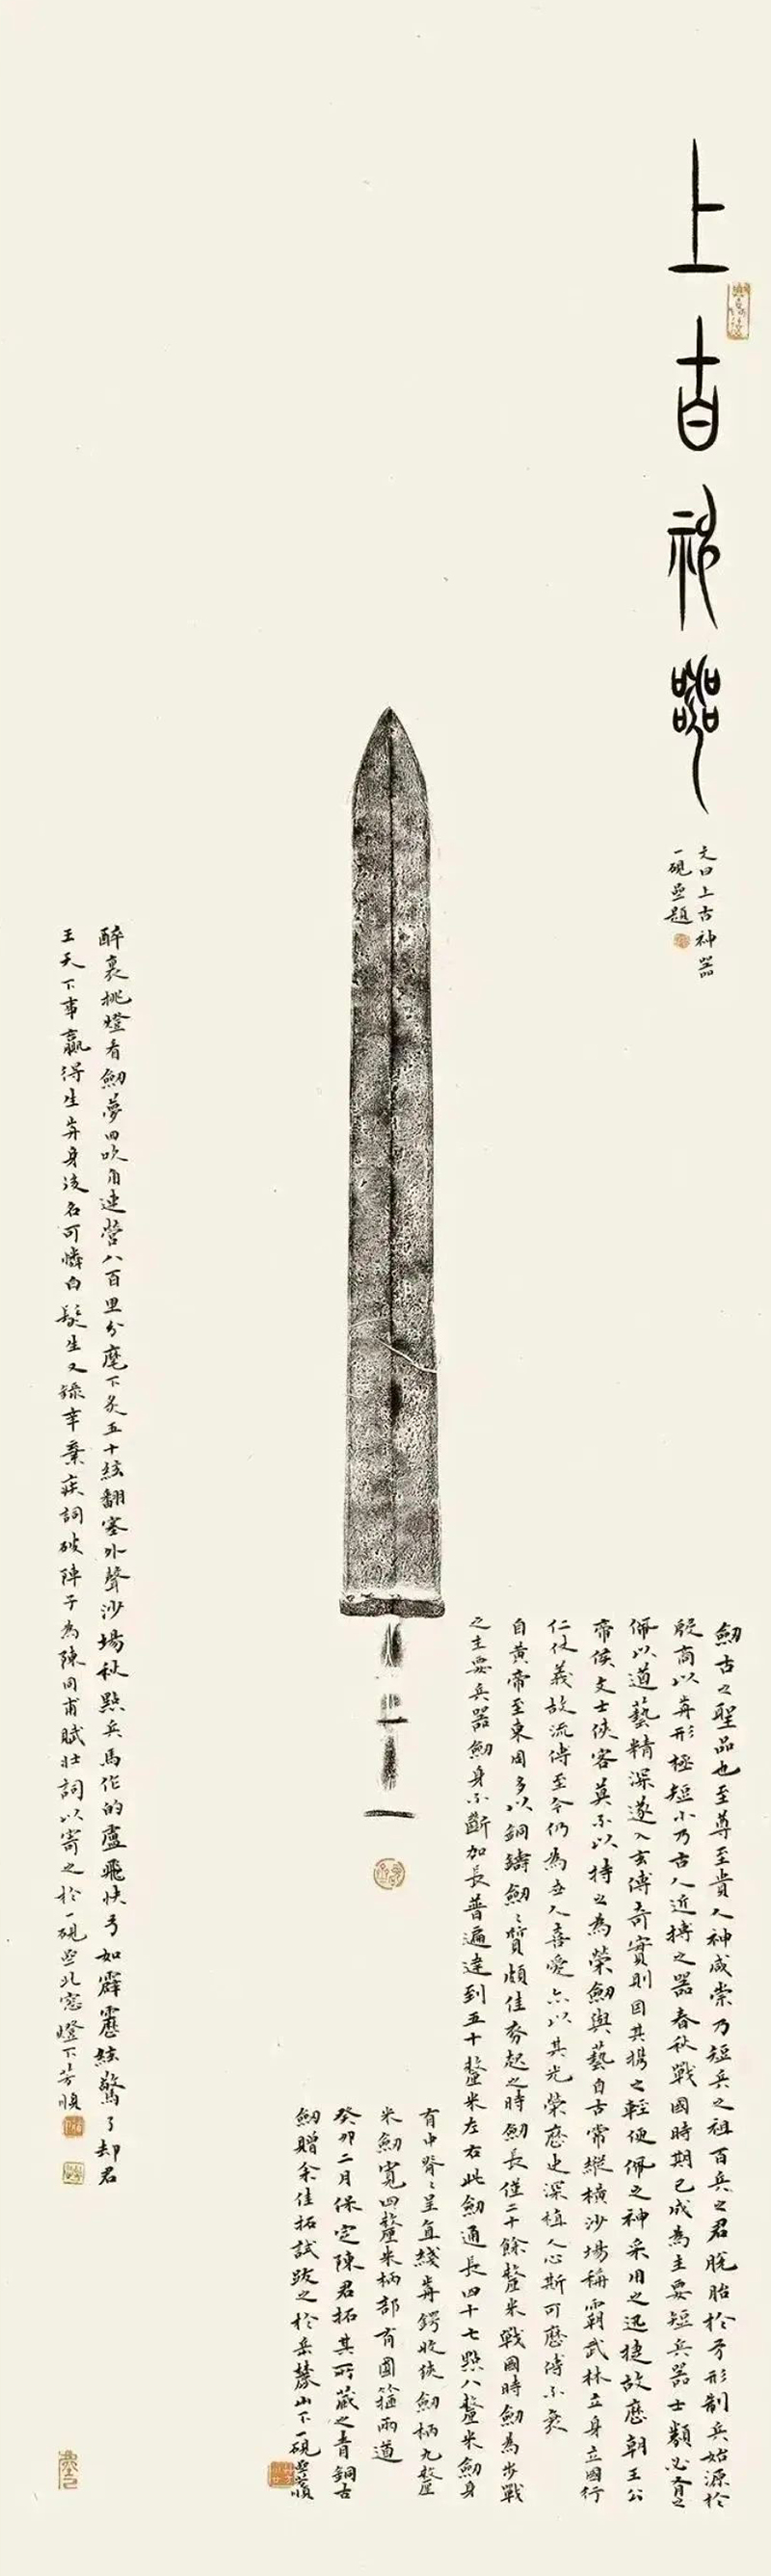 上古神器
文曰上古神器
一硯齋題
劍古之聖品也至尊至貴人神咸崇乃短兵之祖百兵之君脫胎於矛形制兵始源於
殷商以其形極短小乃古人近搏之器春秋戰國時期已成為主要短兵器士類必有之
佩以道藝精深遂入玄傳奇實則因其携之輕便佩之神采用之迅捷故歷朝王公
帝侯文士俠客莫不以持之為榮劍與藝自古常縱橫沙場稱霸武林立身立國行
仁仗義故流傳至今仍為世人喜愛亦以其光榮歷史深植人心斯可歷傳不衰
自黃帝至東周多以銅鑄劍〻質頗佳夯起之時劍長僅二十餘釐米戰國時劍為步戰
之主要兵器劍身不斷加長普遍達到五十釐米左右此劍通長四十七點八釐米劍身
有中脊〻呈直綫其鍔收狹劍柄九釐
米劍寬四釐米柄部有圓箍兩道
癸卯二月保定陳君拓其所藏之青銅古
劍贈余佳拓試跋之於岳麓山下一硯齋
醉裏挑燈看劍夢回吹角連營八百里分麾下炙五十絃翻塞外聲沙場秋點兵馬作的盧飛快弓如霹靂絃驚了却君
王天下事贏得生前身後名可憐白髮生又錄辛棄疾詞破陣子為陳同甫賦壯詞以寄之於一硯齋北窓燈下芳順